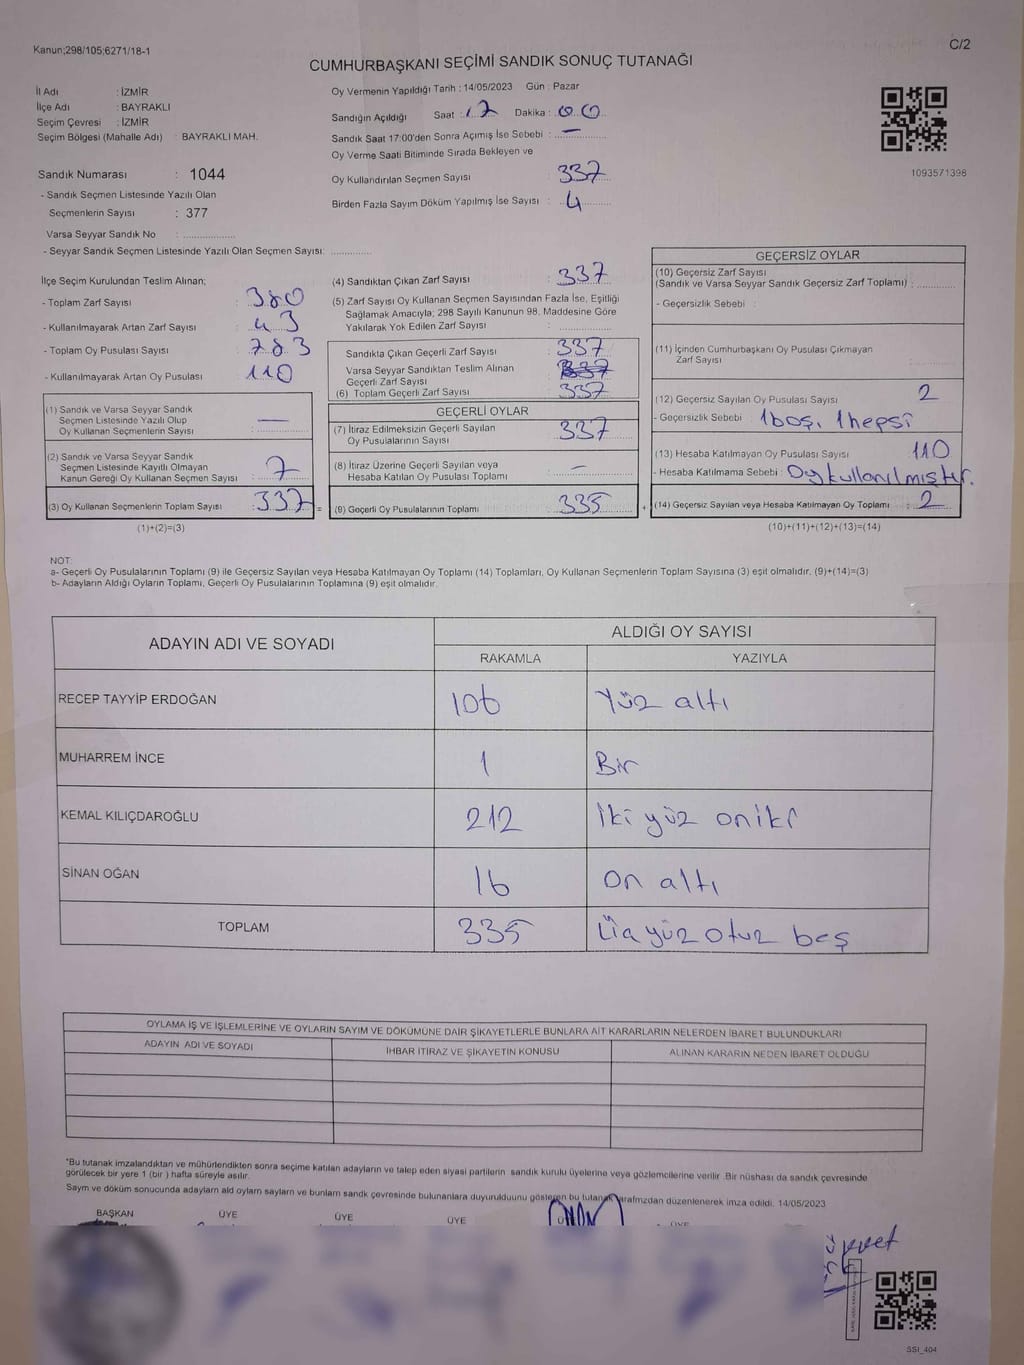 Kanun;298/105;6271/18-1
C/2
CUMHURBAŞKANI SEÇİMİ SANDIK SONUÇ TUTANAĞI
İl Adı : İZMİR
İlçe Adı : BAYRAKLI
Seçim Çevresi : İZMİR
Seçim Bölgesi (Mahalle Adı) : BAYRAKLI MAH.
Sandık Numarası : 1044
- Sandık Seçmen Listesinde Yazılı Olan
Seçmenlerin Sayısı : 377
Varsa Seyyar Sandık No :
- Seyyar Sandık Seçmen Listesinde Yazılı Olan Seçmen Sayısı:
Oy Vermenin Yapıldığı Tarih : 14/05/2023 Gün : Pazar
Sandığın Açıldığı Saat : 17 Dakika : 00
Sandık Saat 17:00'den Sonra Açımış İse Sebebi : —
Oy Verme Saati Bitiminde Sırada Bekleyen ve
Oy Kullandırılan Seçmen Sayısı : 337
Birden Fazla Sayım Döküm Yapılmış İse Sayısı : 4
1093571398
İlçe Seçim Kurulundan Teslim Alınan;
- Toplam Zarf Sayısı : 380
- Kullanılmayarak Artan Zarf Sayısı : 43
- Toplam Oy Pusulası Sayısı : 783
- Kullanılmayarak Artan Oy Pusulası : 110
(1) Sandık ve Varsa Seyyar Sandık
Seçmen Listesinde Yazılı Olup
Oy Kullanan Seçmenlerin Sayısı : —
(2) Sandık ve Varsa Seyyar Sandık
Seçmen Listesinde Kayıtlı Olmayan
Kanun Gereği Oy Kullanan Seçmen Sayısı : 7
(3) Oy Kullanan Seçmenlerin Toplam Sayısı : 337 =
(1)+(2)=(3)
(4) Sandıktan Çıkan Zarf Sayısı : 337
(5) Zarf Sayısı Oy Kullanan Seçmen Sayısından Fazla İse, Eşitliği
Sağlamak Amacıyla; 298 Sayılı Kanunun 98. Maddesine Göre
Yakılarak Yok Edilen Zarf Sayısı :
Sandıkta Çıkan Geçerli Zarf Sayısı : 337
Varsa Seyyar Sandıktan Teslim Alınan
Geçerli Zarf Sayısı
(6) Toplam Geçerli Zarf Sayısı : 337
GEÇERLİ OYLAR
(7) İtiraz Edilmeksizin Geçerli Sayılan
Oy Pusulalarının Sayısı : 337
(8) İtiraz Üzerine Geçerli Sayılan veya
Hesaba Katılan Oy Pusulası Toplamı : —
(9) Geçerli Oy Pusulalarının Toplamı : 335 +
GEÇERSİZ OYLAR
(10) Geçersiz Zarf Sayısı
(Sandık ve Varsa Seyyar Sandık Geçersiz Zarf Toplamı) :
- Geçersizlik Sebebi :
(11) İçinden Cumhurbaşkanı Oy Pusulası Çıkmayan
Zarf Sayısı :
(12) Geçersiz Sayılan Oy Pusulası Sayısı : 2
- Geçersizlik Sebebi : 1 boş, 1 hepsi
(13) Hesaba Katılmayan Oy Pusulası Sayısı : 110
- Hesaba Katılmama Sebebi : Oy kullanılmıştır.
(14) Geçersiz Sayılan veya Hesaba Katılmayan Oy Toplamı : 2
(10)+(11)+(12)+(13)=(14)
NOT:
a- Geçerli Oy Pusulalarının Toplamı (9) ile Geçersiz Sayılan veya Hesaba Katılmayan Oy Toplamı (14) Toplamları, Oy Kullanan Seçmenlerin Toplam Sayısına (3) eşit olmalıdır. (9)+(14)=(3)
b- Adayların Aldığı Oyların Toplamı, Geçerli Oy Pusulalarının Toplamına (9) eşit olmalıdır.
ADAYIN ADI VE SOYADI
ALDIĞI OY SAYISI
RAKAMLA YAZIYLA
RECEP TAYYİP ERDOĞAN 106 Yüz altı
MUHARREM İNCE 1 Bir
KEMAL KILIÇDAROĞLU 212 İki yüz oniki
SİNAN OĞAN 16 On altı
TOPLAM 335 Üç yüz otuz beş
OYLAMA İŞ VE İŞLEMLERİNE VE OYLARIN SAYIM VE DÖKÜMÜNE DAİR ŞİKAYETLERLE BUNLARA AİT KARARLARIN NELERDEN İBARET BULUNDUKLARI
ADAYIN ADI VE SOYADI İHBAR İTİRAZ VE ŞİKAYETİN KONUSU ALINAN KARARIN NEDEN İBARET OLDUĞU
*Bu tutanak imzalandıktan ve mühürlendikten sonra seçime katılan adayların ve talep eden siyasi partilerin sandık kurulu üyelerine veya gözlemcilerine verilir. Bir nüshası da sandık çevresinde
görülecek bir yere 1 (bir ) hafta süreyle asılır.
Sayım ve döküm sonucunda adayların ald oyların sayları ve bunların sandk çevresinde bulunanlara duyurulduunu gösteren bu tutanak tarafmzdan düzenlenerek imza edildi. 14/05/2023
BAŞKAN ÜYE ÜYE ÜYE ÜYE
SSI_404